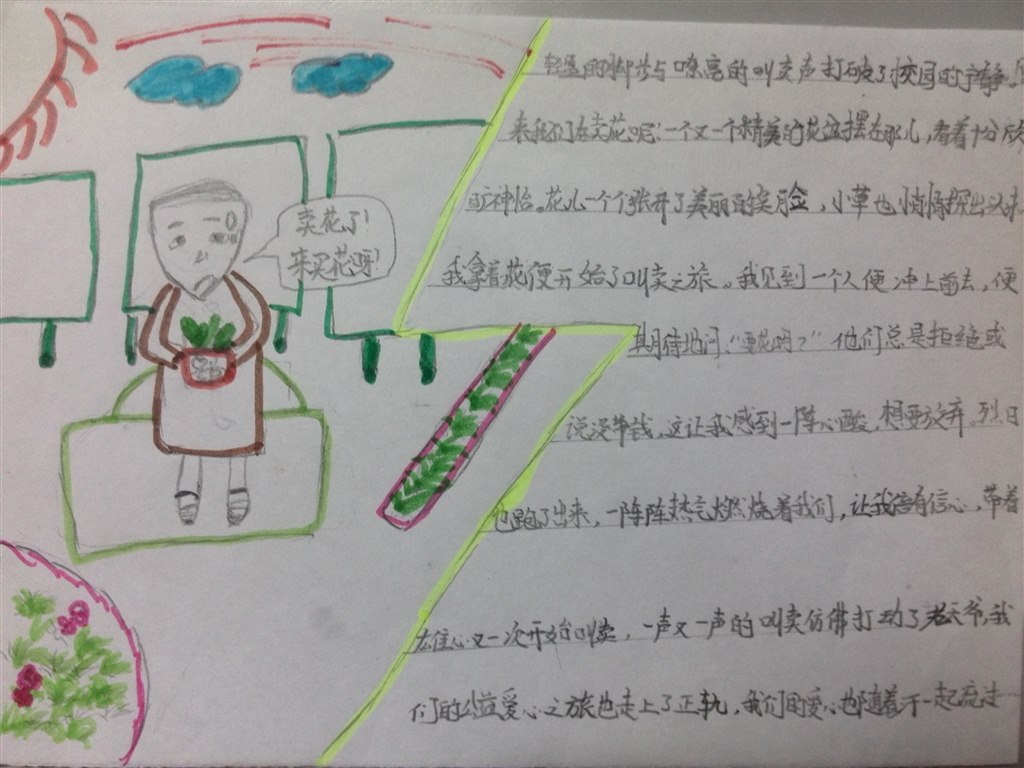 卖花了!
来买花呀!
轻盈的脚步与嘹亮的叫卖声打破了校园的宁静。原
来我们在卖花呢!一个又一个精美的花盆摆在那儿,看着十分心
旷神怡。花儿一个个张开了美丽的笑脸,小草也悄悄探出头来
我拿着花便开始了叫卖之旅。我见到一个人便冲上前去,便
其期待地问:“要花吗?”他们总是拒绝或
说没带钱,这让我感到一阵心酸,想要放弃。烈日
也跑了出来,一阵阵热气燃烧着我们,让我倍有信心,带着
雄心又一次开始叫卖,一声又一声的叫卖仿佛打动了老天爷,我
们的公益爱心之旅也走上了正轨,我们的爱心也随着汗一起流过